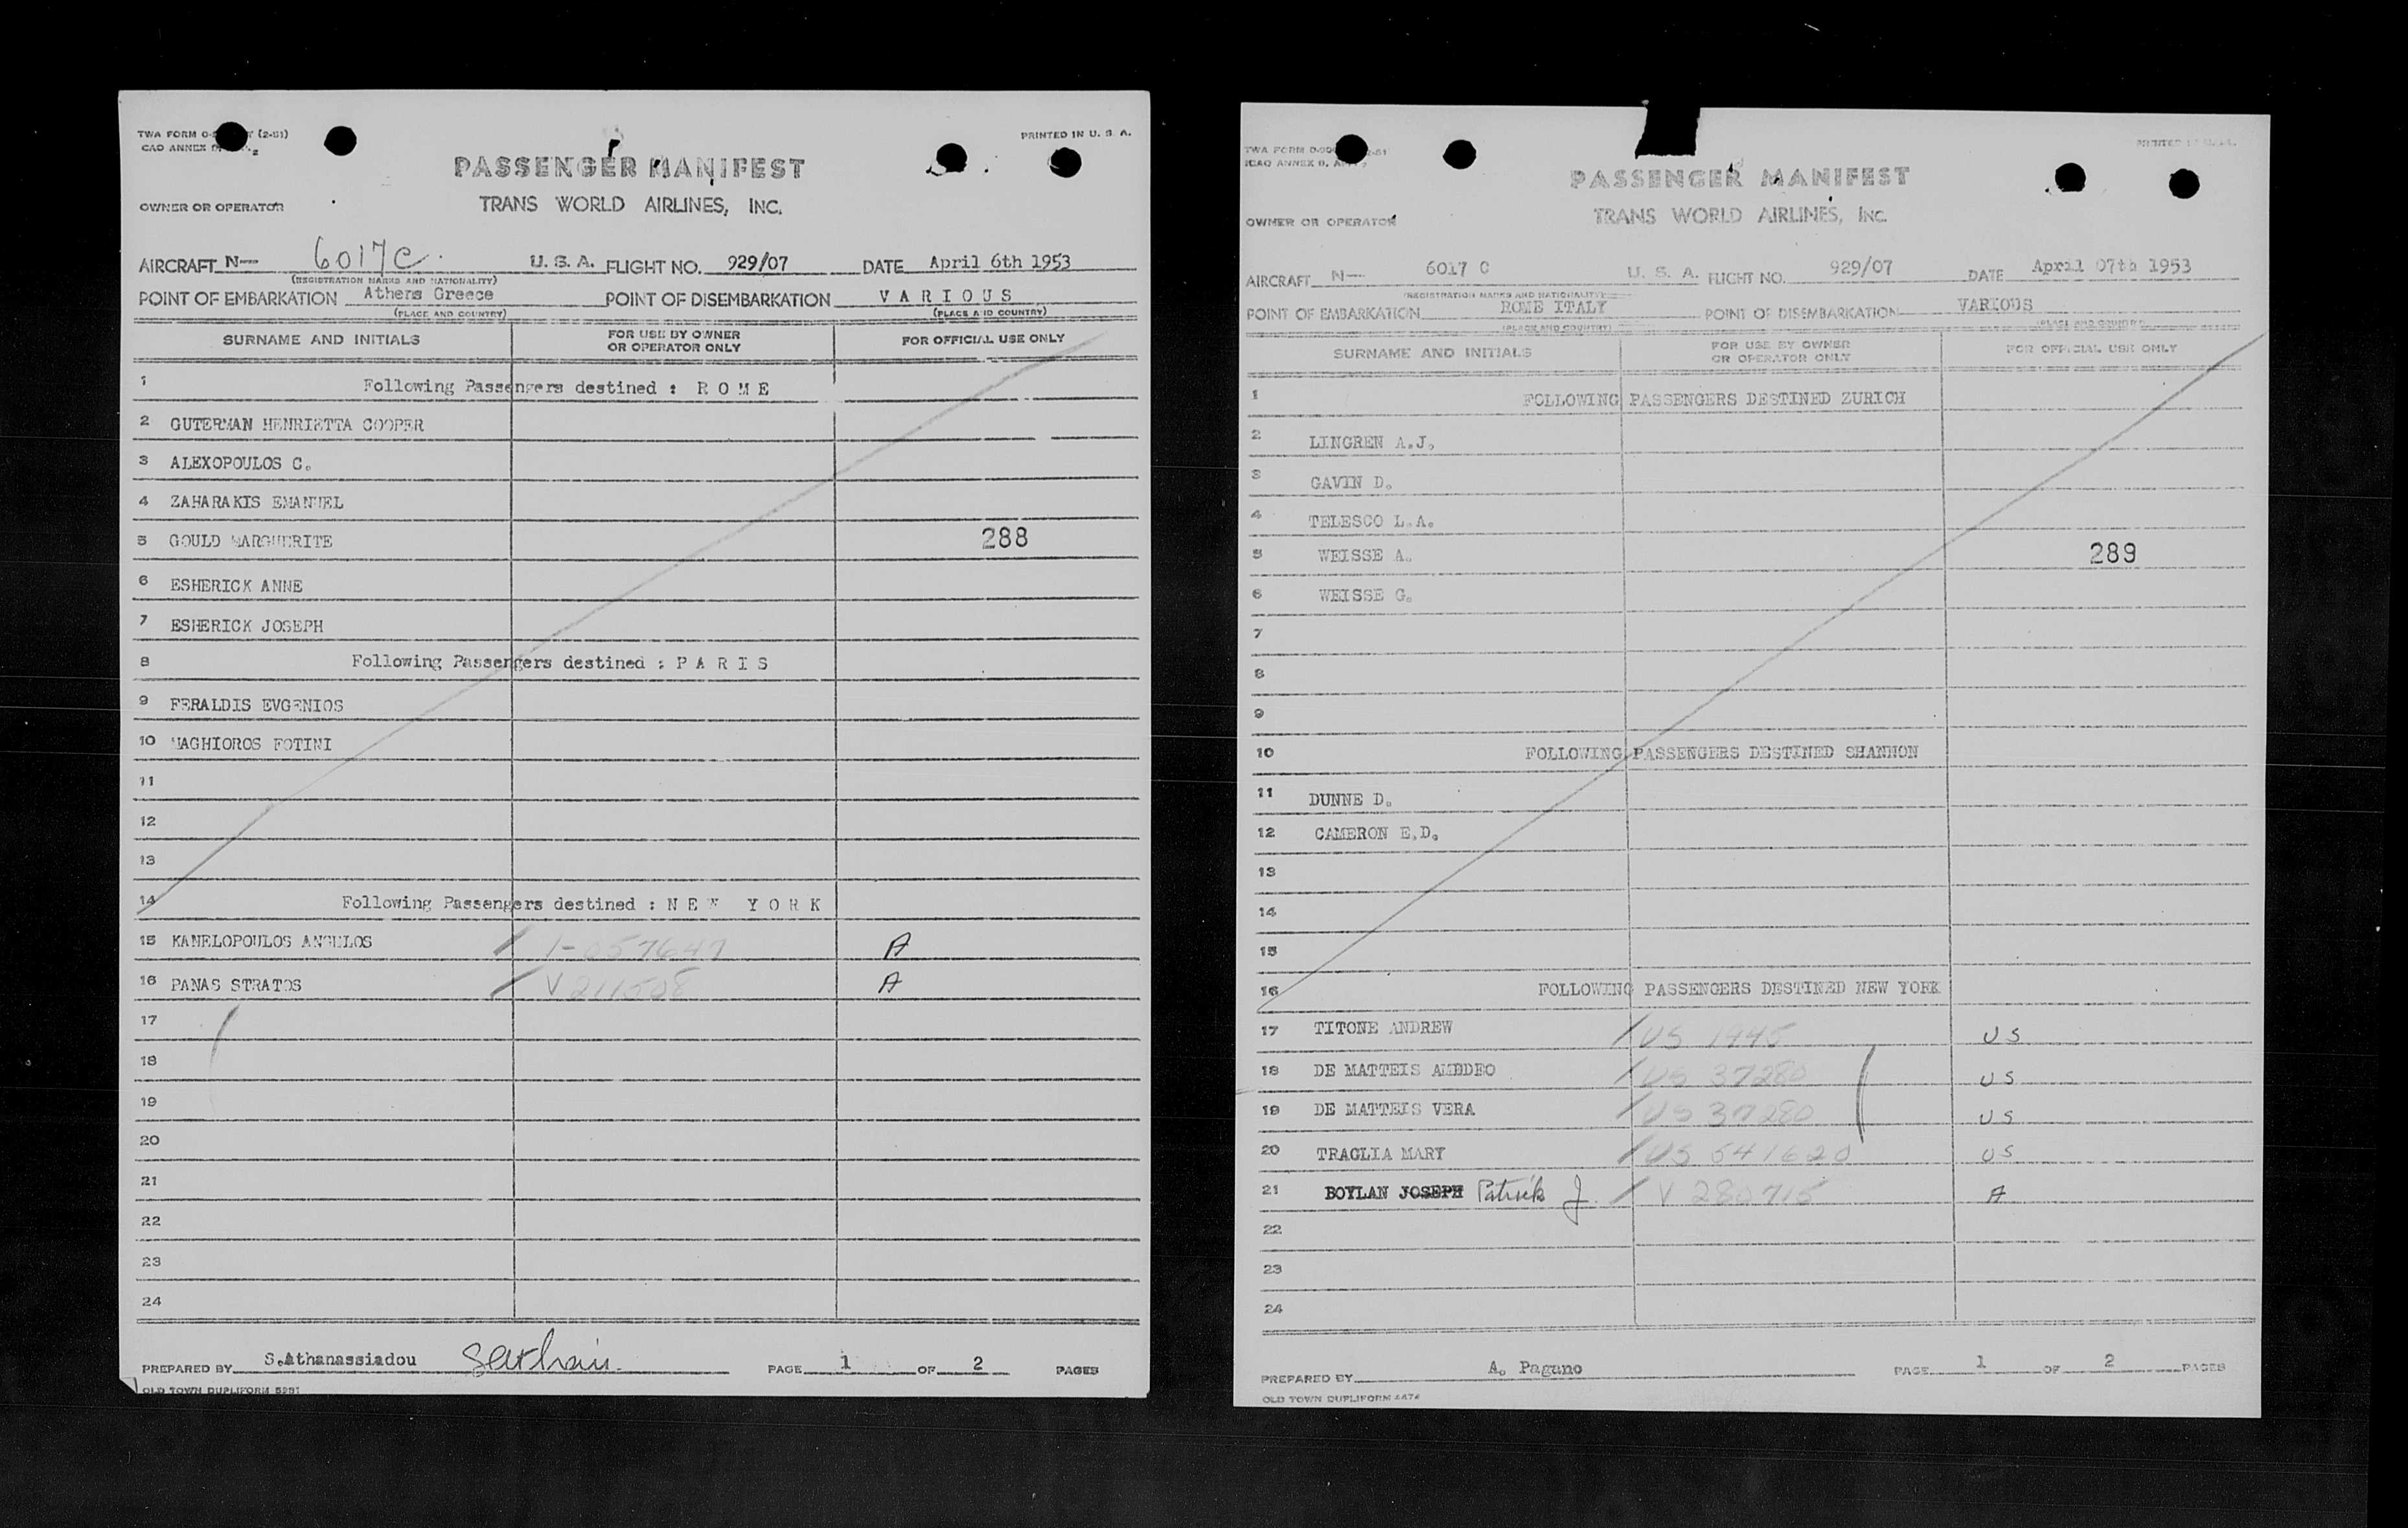 TWA FORM O- (2-51)
CAO ANNEX
PRINTED IN U. S. A.
PASSENGER MANIFEST
OWNER OR OPERATOR
TRANS WORLD AIRLINES, INC.
AIRCRAFT N— 6017C U. S. A. FLIGHT NO. 929/07 DATE April 6th 1953
(REGISTRATION MARKS AND NATIONALITY)
POINT OF EMBARKATION Athens Greece POINT OF DISEMBARKATION V A R I O U S
(PLACE AND COUNTRY) (PLACE AND COUNTRY)
SURNAME AND INITIALS FOR USE BY OWNER OR OPERATOR ONLY FOR OFFICIAL USE ONLY
1 Following Passengers destined : R O M E
2 GUTERMAN HENRIETTA COOPER
3 ALEXOPOULOS C.
4 ZAHARAKIS EMANUEL
5 GOULD MARGUERITE 288
6 ESHERICK ANNE
7 ESHERICK JOSEPH
8 Following Passengers destined : P A R I S
9 FERALDIS EVGENIOS
10 MAGHIOROS FOTINI
11
12
13
14 Following Passengers destined : N E W Y O R K
15 KANELOPOULOS ANGELOS / I-057647 A
16 PANAS STRATOS / V 211508 A
17
18
19
20
21
22
23
24
PREPARED BY S.Athanassiadou PAGE 1 OF 2 PAGES
OLD TOWN DUPLIFORM
TWA FORM
ICAO ANNEX 9,
PRINTED IN U.S.A.
PASSENGER MANIFEST
OWNER OR OPERATOR
TRANS WORLD AIRLINES, INC.
AIRCRAFT N— 6017 C U. S. A. FLIGHT NO. 929/07 DATE April 07th 1953
(REGISTRATION MARKS AND NATIONALITY)
POINT OF EMBARKATION ROME ITALY POINT OF DISEMBARKATION VARIOUS
(PLACE AND COUNTRY) (PLACE AND COUNTRY)
SURNAME AND INITIALS FOR USE BY OWNER OR OPERATOR ONLY FOR OFFICIAL USE ONLY
1 FOLLOWING PASSENGERS DESTINED ZURICH
2 LINGREN A.J.
3 GAVIN D.
4 TELESCO L.A.
5 WEISSE A. 289
6 WEISSE G.
7
8
9
10 FOLLOWING PASSENGERS DESTINED SHANNON
11 DUNNE D.
12 CAMERON E.D.
13
14
15
16 FOLLOWING PASSENGERS DESTINED NEW YORK
17 TITONE ANDREW / US 1445 US
18 DE MATTEIS AMEDEO / US 37280 US
19 DE MATTEIS VERA / US 37280 US
20 TRAGLIA MARY / US 541620 US
21 BOYLAN JOSEPH Patrick J / V 280715 A
22
23
24
PREPARED BY A. Pagano PAGE 1 OF 2 PAGES
OLD TOWN DUPLIFORM